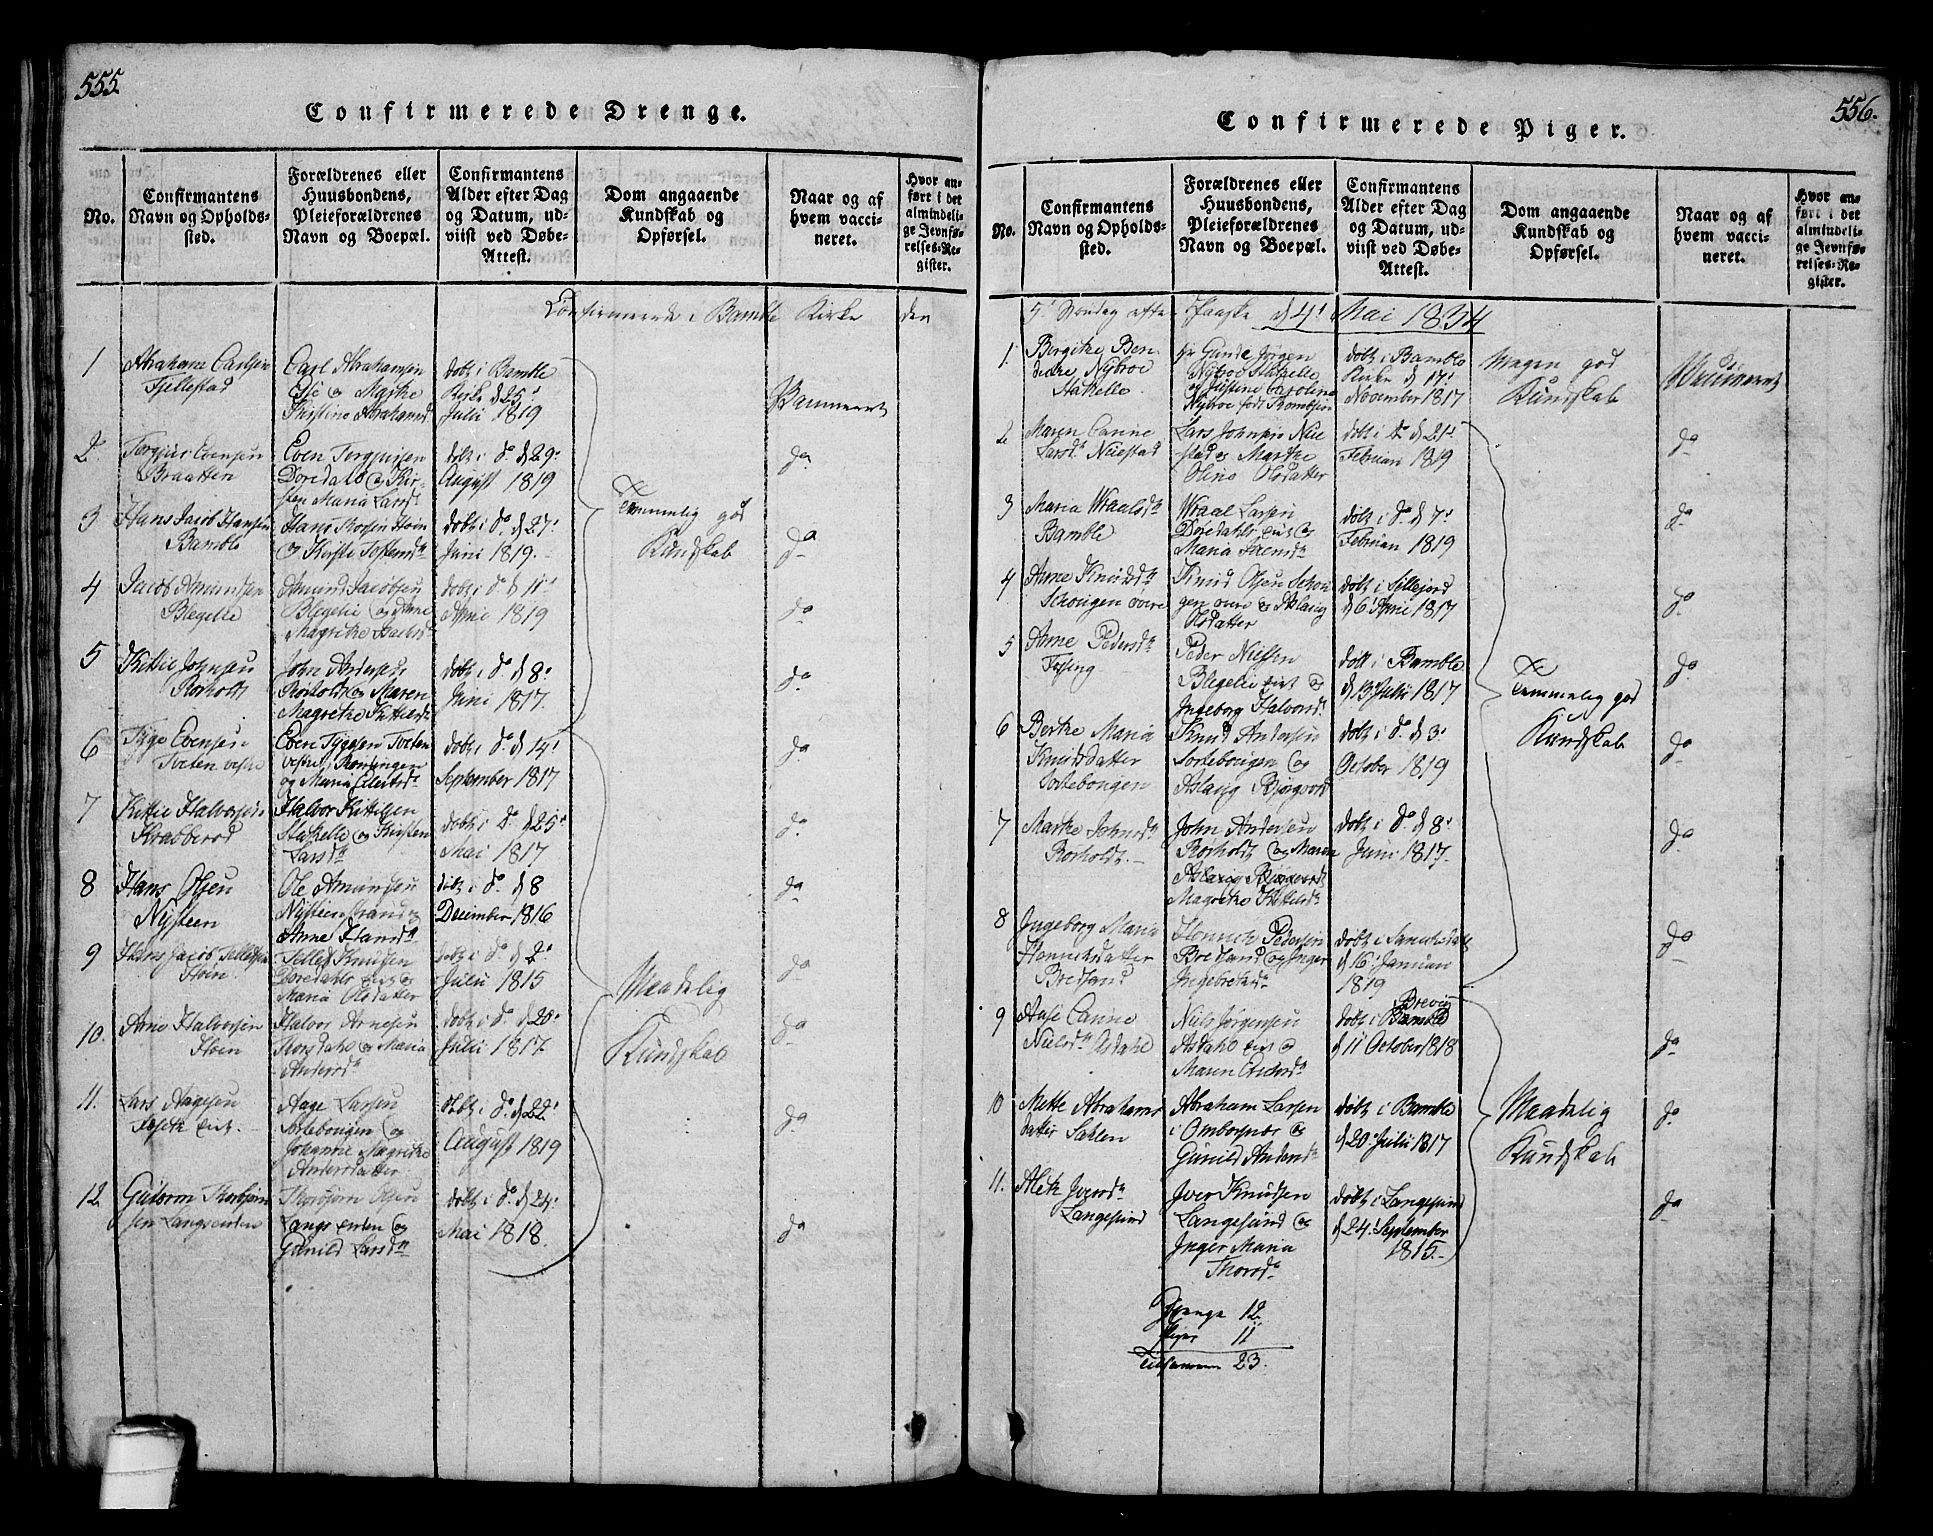 555.
Confirmerede Drenge.
No.
Confirmantens
Navn og Opholds-
sted.
Forældrenes eller
Huusbondens,
Pleieforældrenes
Navn og Boepæl.
Confirmantens
Alder efter Dag
og Datum, ud-
viist ved Døbe-
Attest.
Dom angaaende
Kundskab og
Opførsel.
Naar og af
hvem vacci-
neret.
Hvor an-
ført i det
almindeli-
ge Jevnfø-
relses-Re-
gister.
Confirmerede i Bamble Kirke den
1
Abraham Carlsen
Fjellestad
Carl Abrahamsen
Kistine Abrahamsd
døbt i Bamble
Kirke d 25'
Julii 1819
2.
Torgius Evensen
Braatten
Even Torgiusen
Doredahl og Kir-
sten Maria Larsd.
døbt i do d 29'
August 1819
do
3
Hans Jacob Hansen
Bamble
døbt i do. d 27'
Juni 1819.
do
Temmelig god
Kundskab
4
Jacob Amundsen
Blegelie
Amund Jacobsen
Blegelie og Anne
Magrethe
døbt i do d 11'
1819
do
5
Kittil Johnsen
Rosholdt
John Andersen
Rosholdt og Maren
Magrethe Kittilsd.
døbt i do. d 8'
Juni 1817.
do
6
Tyge Evensen
Tveten vestre
Even Tygesen Tveten
og Maria
døbt i do. d 14'
September 1817
do
7
Kittil Halvorsen
Krabberød
Halvor Kittilsen
Stathelle og Kirsten
Larsdr
døbt i do d 25'
Mai 1817
do.
8
Hans Olsen
Nysteen
Ole Amundsen
Nysteen
Anne Hansdr
døbt i do. d 8
December 1816
do
9
Hans Jacob Tellefsen
Hoen
Tellef Knudsen
Doredahls eiet og
Maria Olsdatter
døbt i do. d 2'
Julii 1815
do
Maadelig
Kundskab
10.
Arne Halvorsen
Hoen
Halvor Arnesen
og Maria
Andersdr
døbt i do. d 20'
Julii 1817.
do
11.
Lars Aagesen
eiet.
Aage Larsen
Sortebougen og
Johanne Magrethe
Andersdatter
døbt i do. d 22'
August 1819
do
12.
Gutorm Thorbjørn
sen Langs enden
Thorbjørn Olsen
Langs enden og
Gunild Larsdr
døbt i do. d 24'
Mai 1818.
do
556.
Confirmerede Piger.
No.
Confirmantens
Navn og Opholds-
sted.
Forældrenes eller
Huusbondens,
Pleieforældrenes
Navn og Boepæl.
Confirmantens
Alder efter Dag
og Datum, ud-
viist ved Døbe-
Attest.
Dom angaaende
Kundskab og
Opførsel.
Naar og af
hvem vacci-
neret.
Hvor an-
ført i det
almindeli-
ge Jevnfø-
relses-Re-
gister.
5' Søndag efter Paaske d 4' Mai 1834
1.
Bergithe Ben-
Nybroe
Stathelle
Gunde Jørgen
Nybroe Stathelle
og Justine Caroline
Nybroe født
døbt i Bamble
Kirke d 17'
November 1817
Megen god
Kundskab
Vaccineret
2.
Maren Carine
Larsdr Niestad
Lars Johnsen Nie
stad og Marthe
Oline Olsdatter
døbt i do d 21'
Februari 1819
do
3
Maria Wraalsdr
Bamble
Wraal Larsen
Doredahls eiet og
Maria
døbt i do. d 7'
Februari 1819
do
4
Anne Knudsdr
Schougen øvre
Knud Olsen Schou
gen øvre og Aslaug
Olsdatter
døbt i Sillejord
d 6' 1817
do
5
Anne Pedersdr
Peder Nielsen
Blegelie eiet og
Ingeborg Halvorsd.
døbt i Bamble
d 13' Julii 1817
do
Temmelig god
Kundskab
6
Berthe Maria
Knudsdatter
Sortebougen
Knud Andersen
Sortebougen og
Aslaug
døbt i do. d 3'
October 1819
do
7
Marthe Johnsdr
Rosholdt.
John Andersen
Rosholdt og Maren
Magrethe Kittilsdr
døbt i do. d 8'
Juni 1817.
do
8
Ingeborg Maria
Henrichsdatter
Bredsand
Henrich Pedersen
Bredsand og Inger
Ingebretsdr
døbt i
d 16' Januari
1819
do
9
Aase Carine
Nielsdr Asdahl
Niels Jørgensen
Asdahls eiet og
Maren
døbt i Brevig
Bamble
d 11 October 1818
do
10
Mette Abrahams
datter Sahlen
Abraham Larsen
i Ombordsnæs og
Gunild
døbt i Bamble
d 20' Julii 1817
Maadelig
Kundskab
do
11.
Aleth Iversdr
Langesund
Iver Knudsen
Langesund og
Inger Maria
Thorsdr
døbt i Langesund
d 24' September
1815.
do
Drenge 12.
Piger 11
Tilsammen 23.